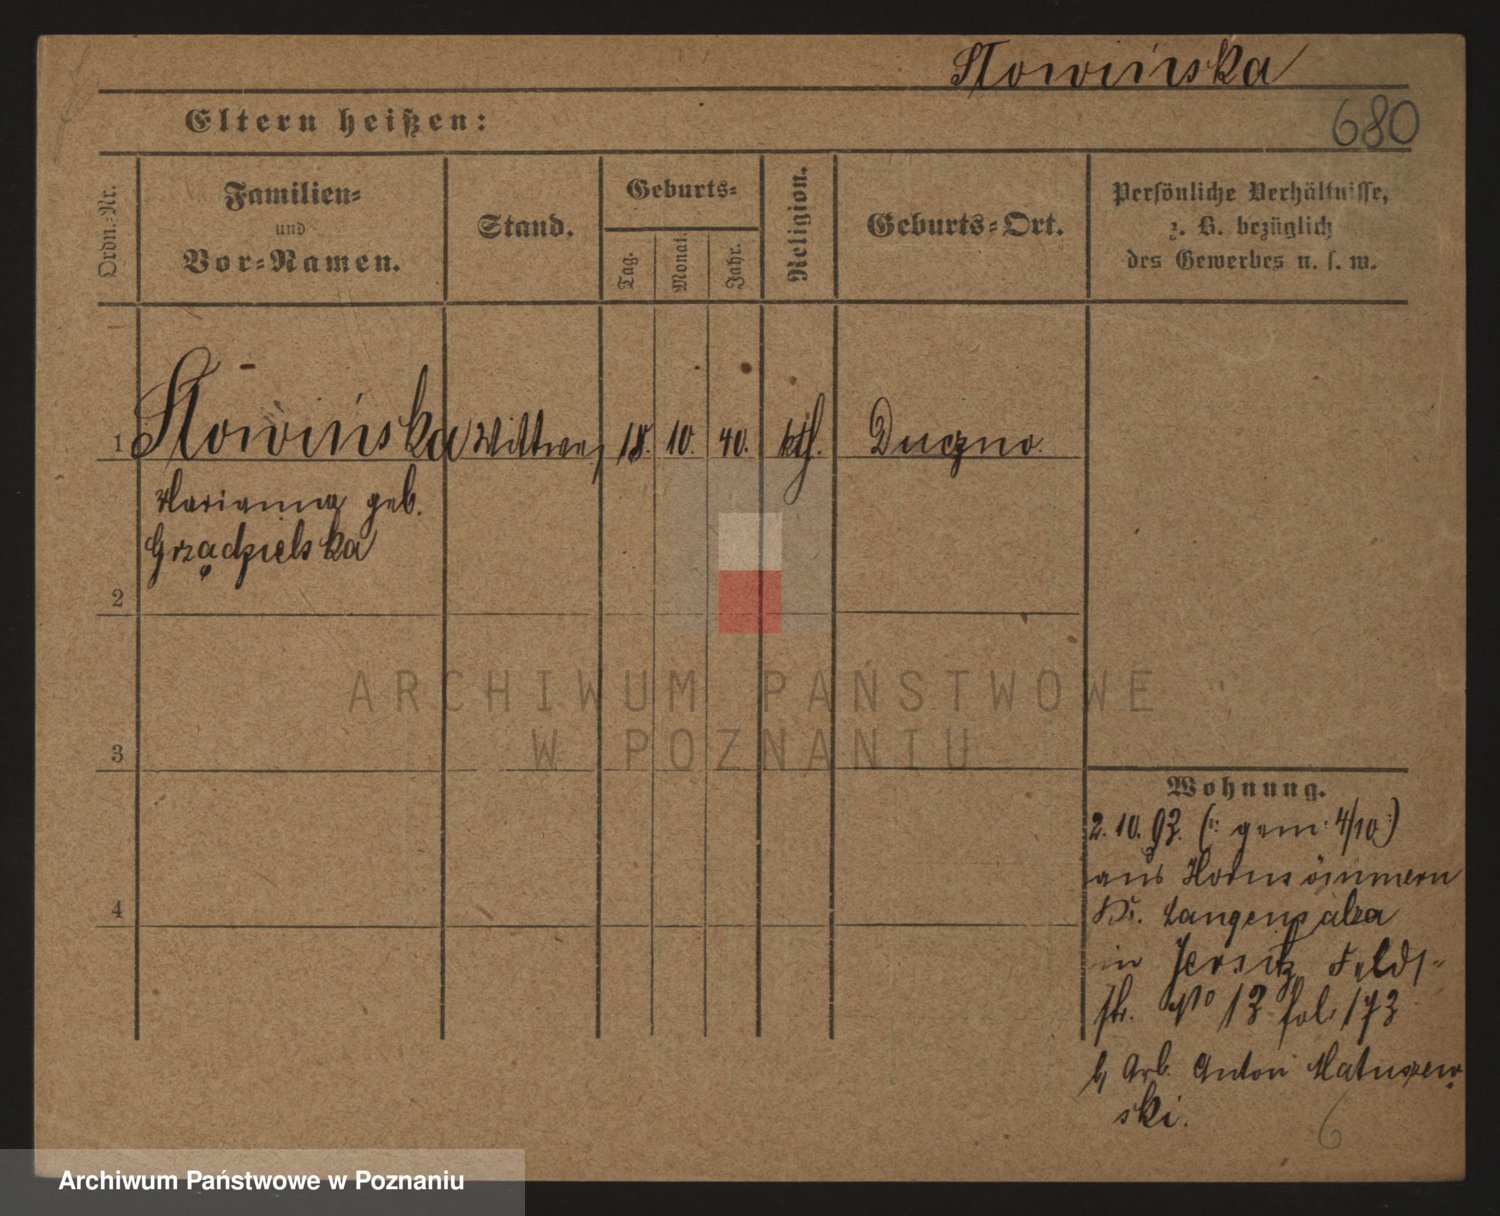 Słowińska
680
Eltern heißen:
Ordn.-Nr.
Familien-
und
Vor-Namen.
Stand.
Geburts-
Tag.
Monat.
Jahr.
Religion.
Geburts-Ort.
Persönliche Verhältnisse,
z. B. bezüglich
des Gewerbes u. s. w.
1 Słowińska Wittwe, 18. 10. 40. kth. Duczno.
Marianna geb.
Grządzielska
2
3
4
ARCHIWUM PAŃSTWOWE
W POZNANIU
Wohnung.
2. 10. 93. (: gem: 4/10:)
aus Hornsömmern
Kr. Langensalza
in Jersitz Feld-
str. No 13 fol. 173
b Arb. Anton Matuszew
ski.
6
Archiwum Państwowe w Poznaniu